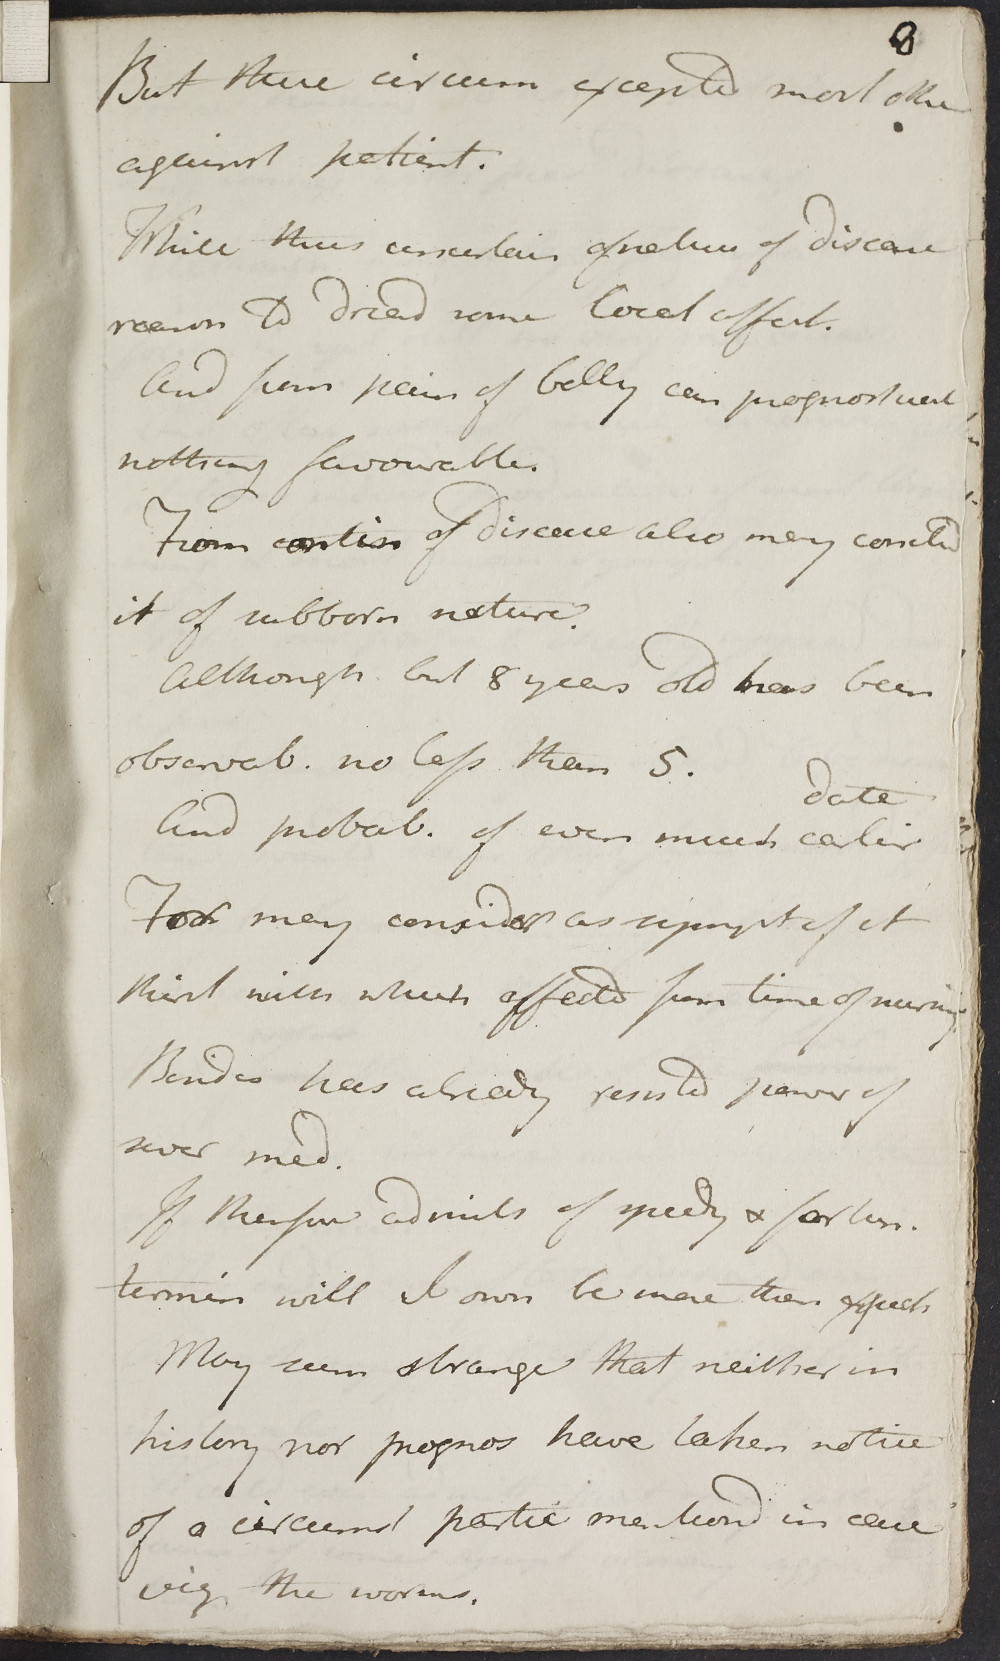 8
But these circum excepted most other
against patient.
While thus uncertain of nature of disease
reason to dread some local affect.
And from pain of belly can prognosticat
nothing favourable.
From contin of disease also may conclud
it of stubborn nature.
Although but 8 years old has been
observab. no less than 5.
date
And probab. of even much earlier
For may consider as sympt of it
thirst with which affected from time of nursing.
Besides has already resisted power of
sever med.
If therefore admits of speedy &
termin will I own be more than expect
May seem strange that neither in
history nor prognos have taken notice
of a circumst partic mentiond in case
viz the worms.